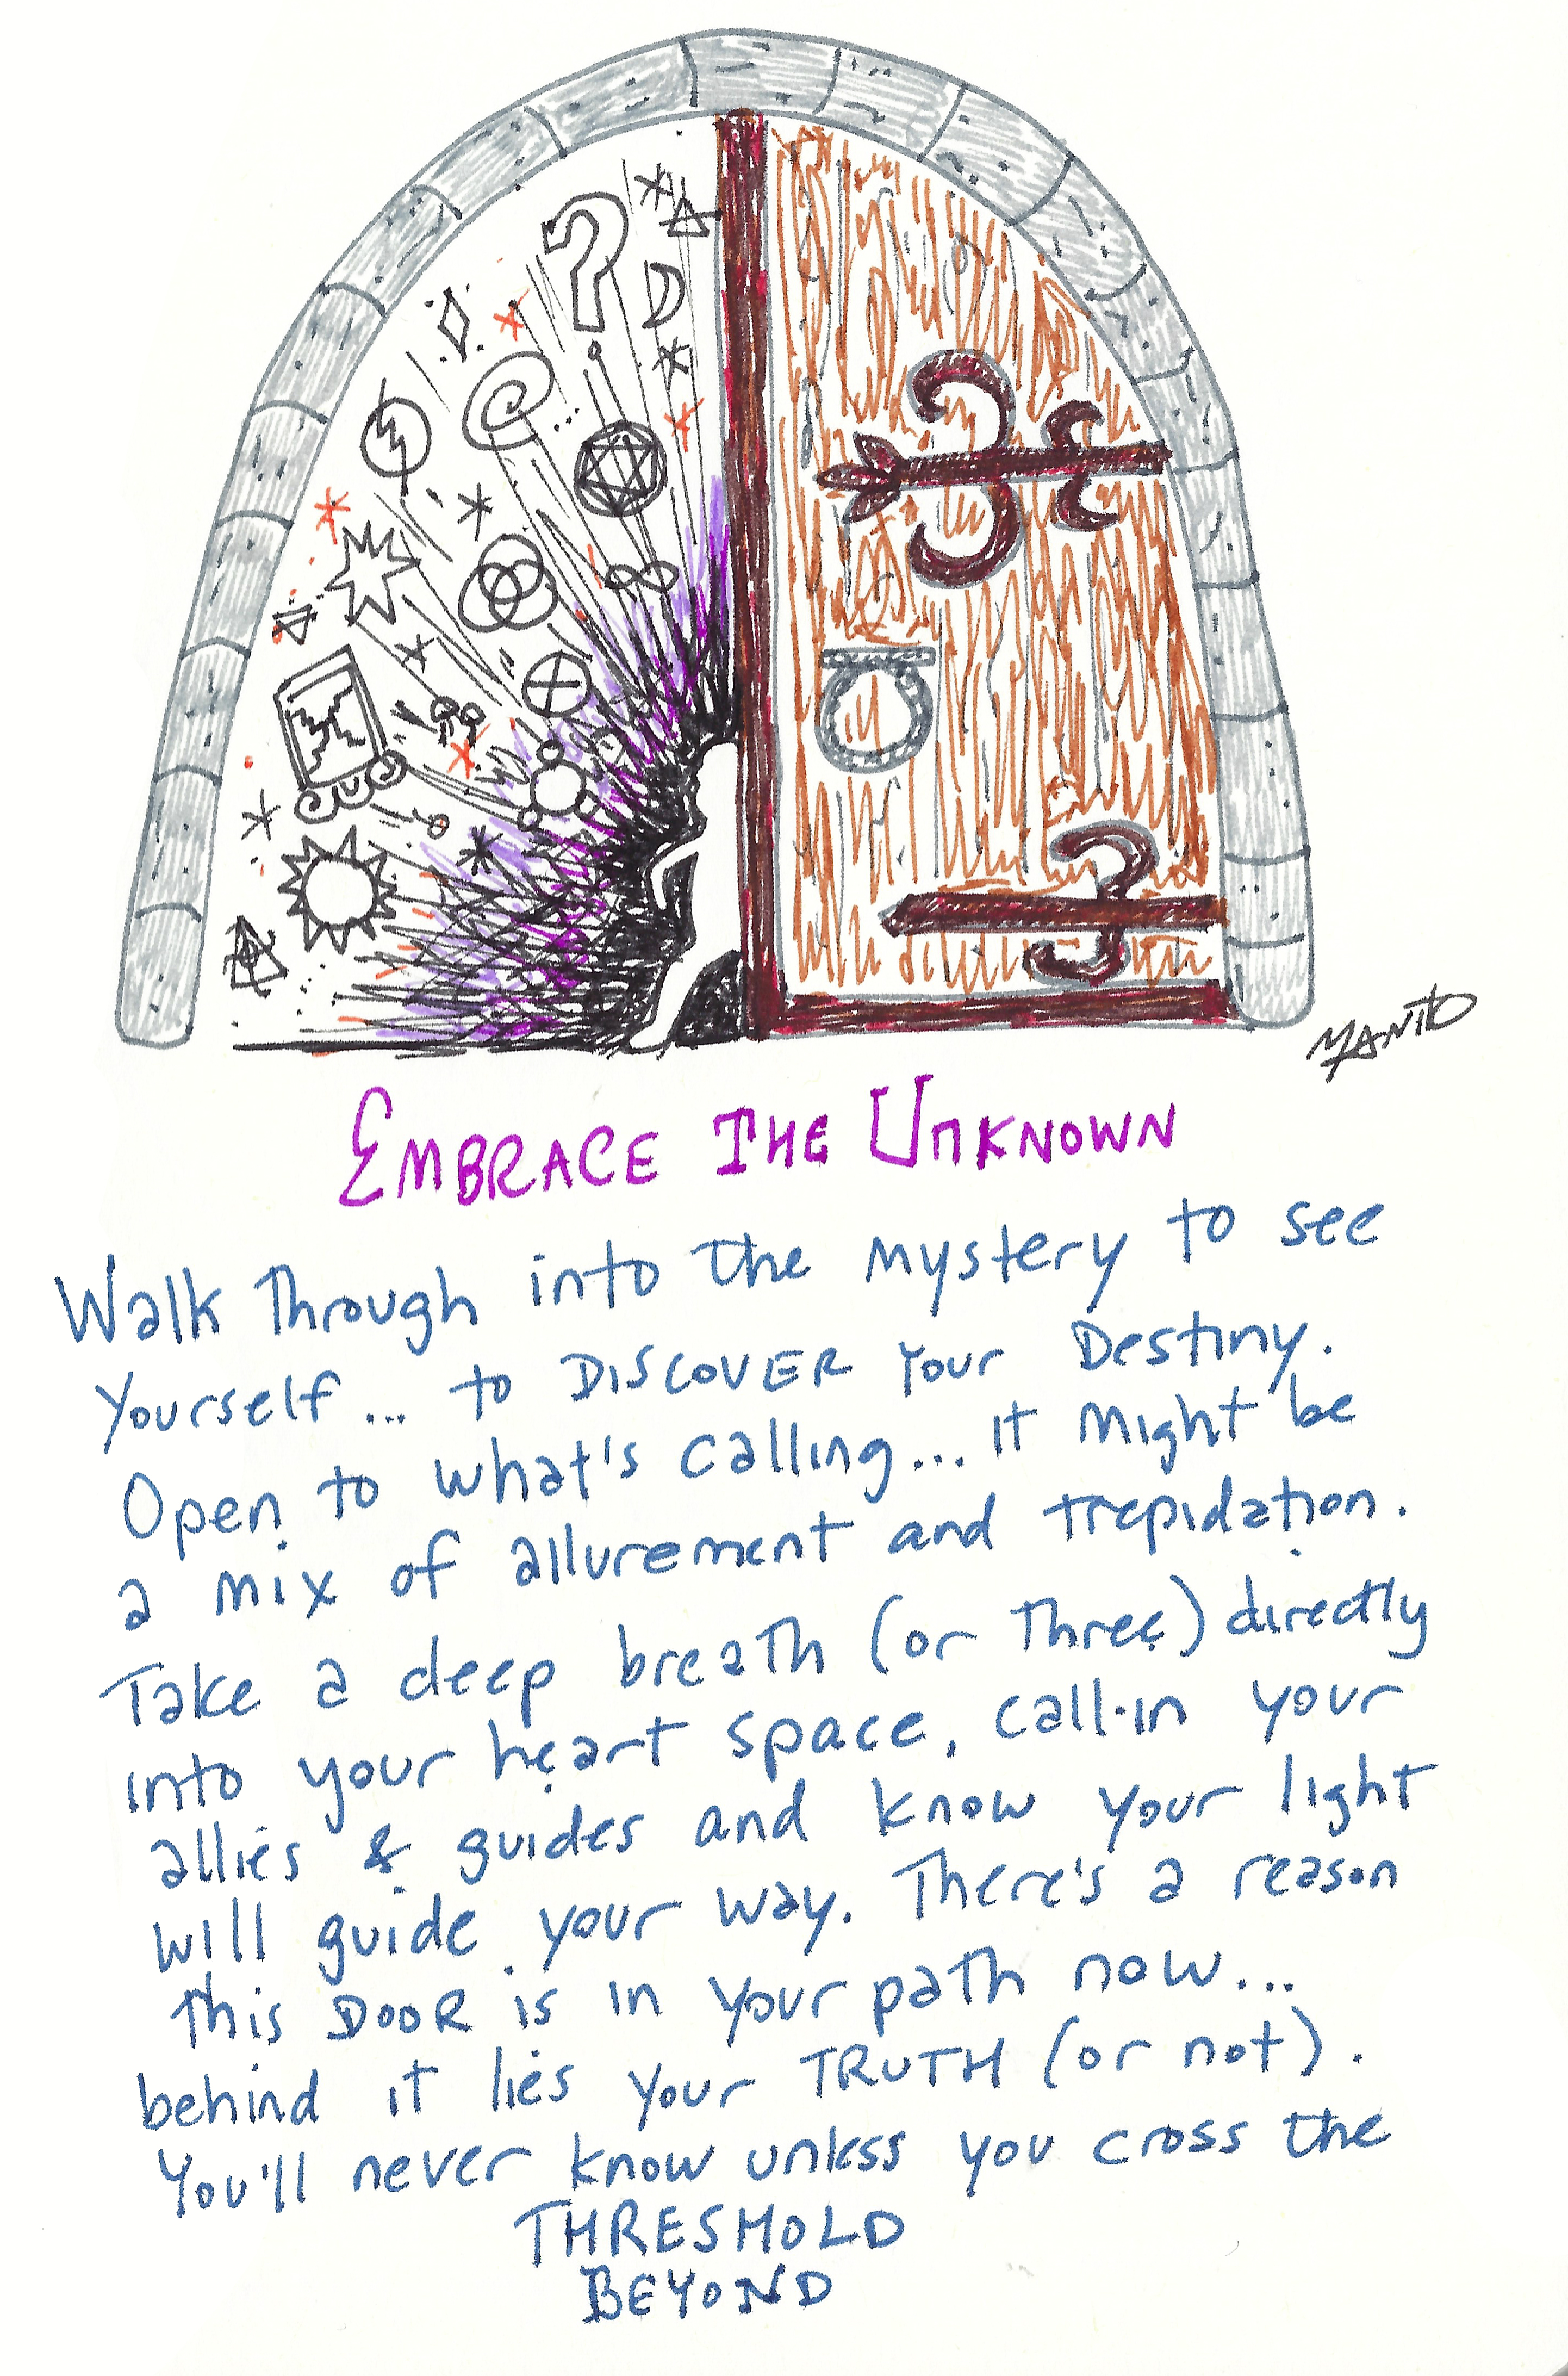 MANTO
EMBRACE THE UNKNOWN
Walk Through into the mystery to see
Yourself... to DISCOVER Your Destiny.
Open to what's calling... it might be
a mix of allurement and trepidation.
Take a deep breath (or three) directly
into your heart space, call-in your
allies & guides and know your light
will guide your way. There's a reason
this DOOR is in your path now...
behind it lies your TRUTH (or not).
You'll never know unless you cross the
THRESHOLD
BEYOND